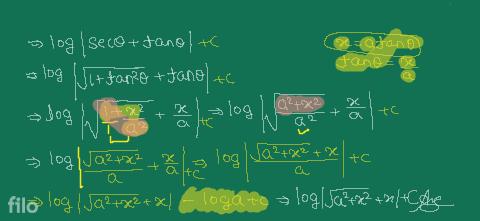 ⇒ log |secθ + tanθ| + c
x = a tanθ
⇒ log |√(1+tan²θ) + tanθ| + c
tanθ = x/a
⇒ log |√(1+x²/a²) + x/a| + c ⇒ log |√((a²+x²)/a²) + x/a| + c
⇒ log |√(a²+x²)/a + x/a| + c ⇒ log |(√(a²+x²) + x)/a| + c
⇒ log |√(a²+x²) + x| - log a + c ⇒ log |√(a²+x²) + x| + C
filo